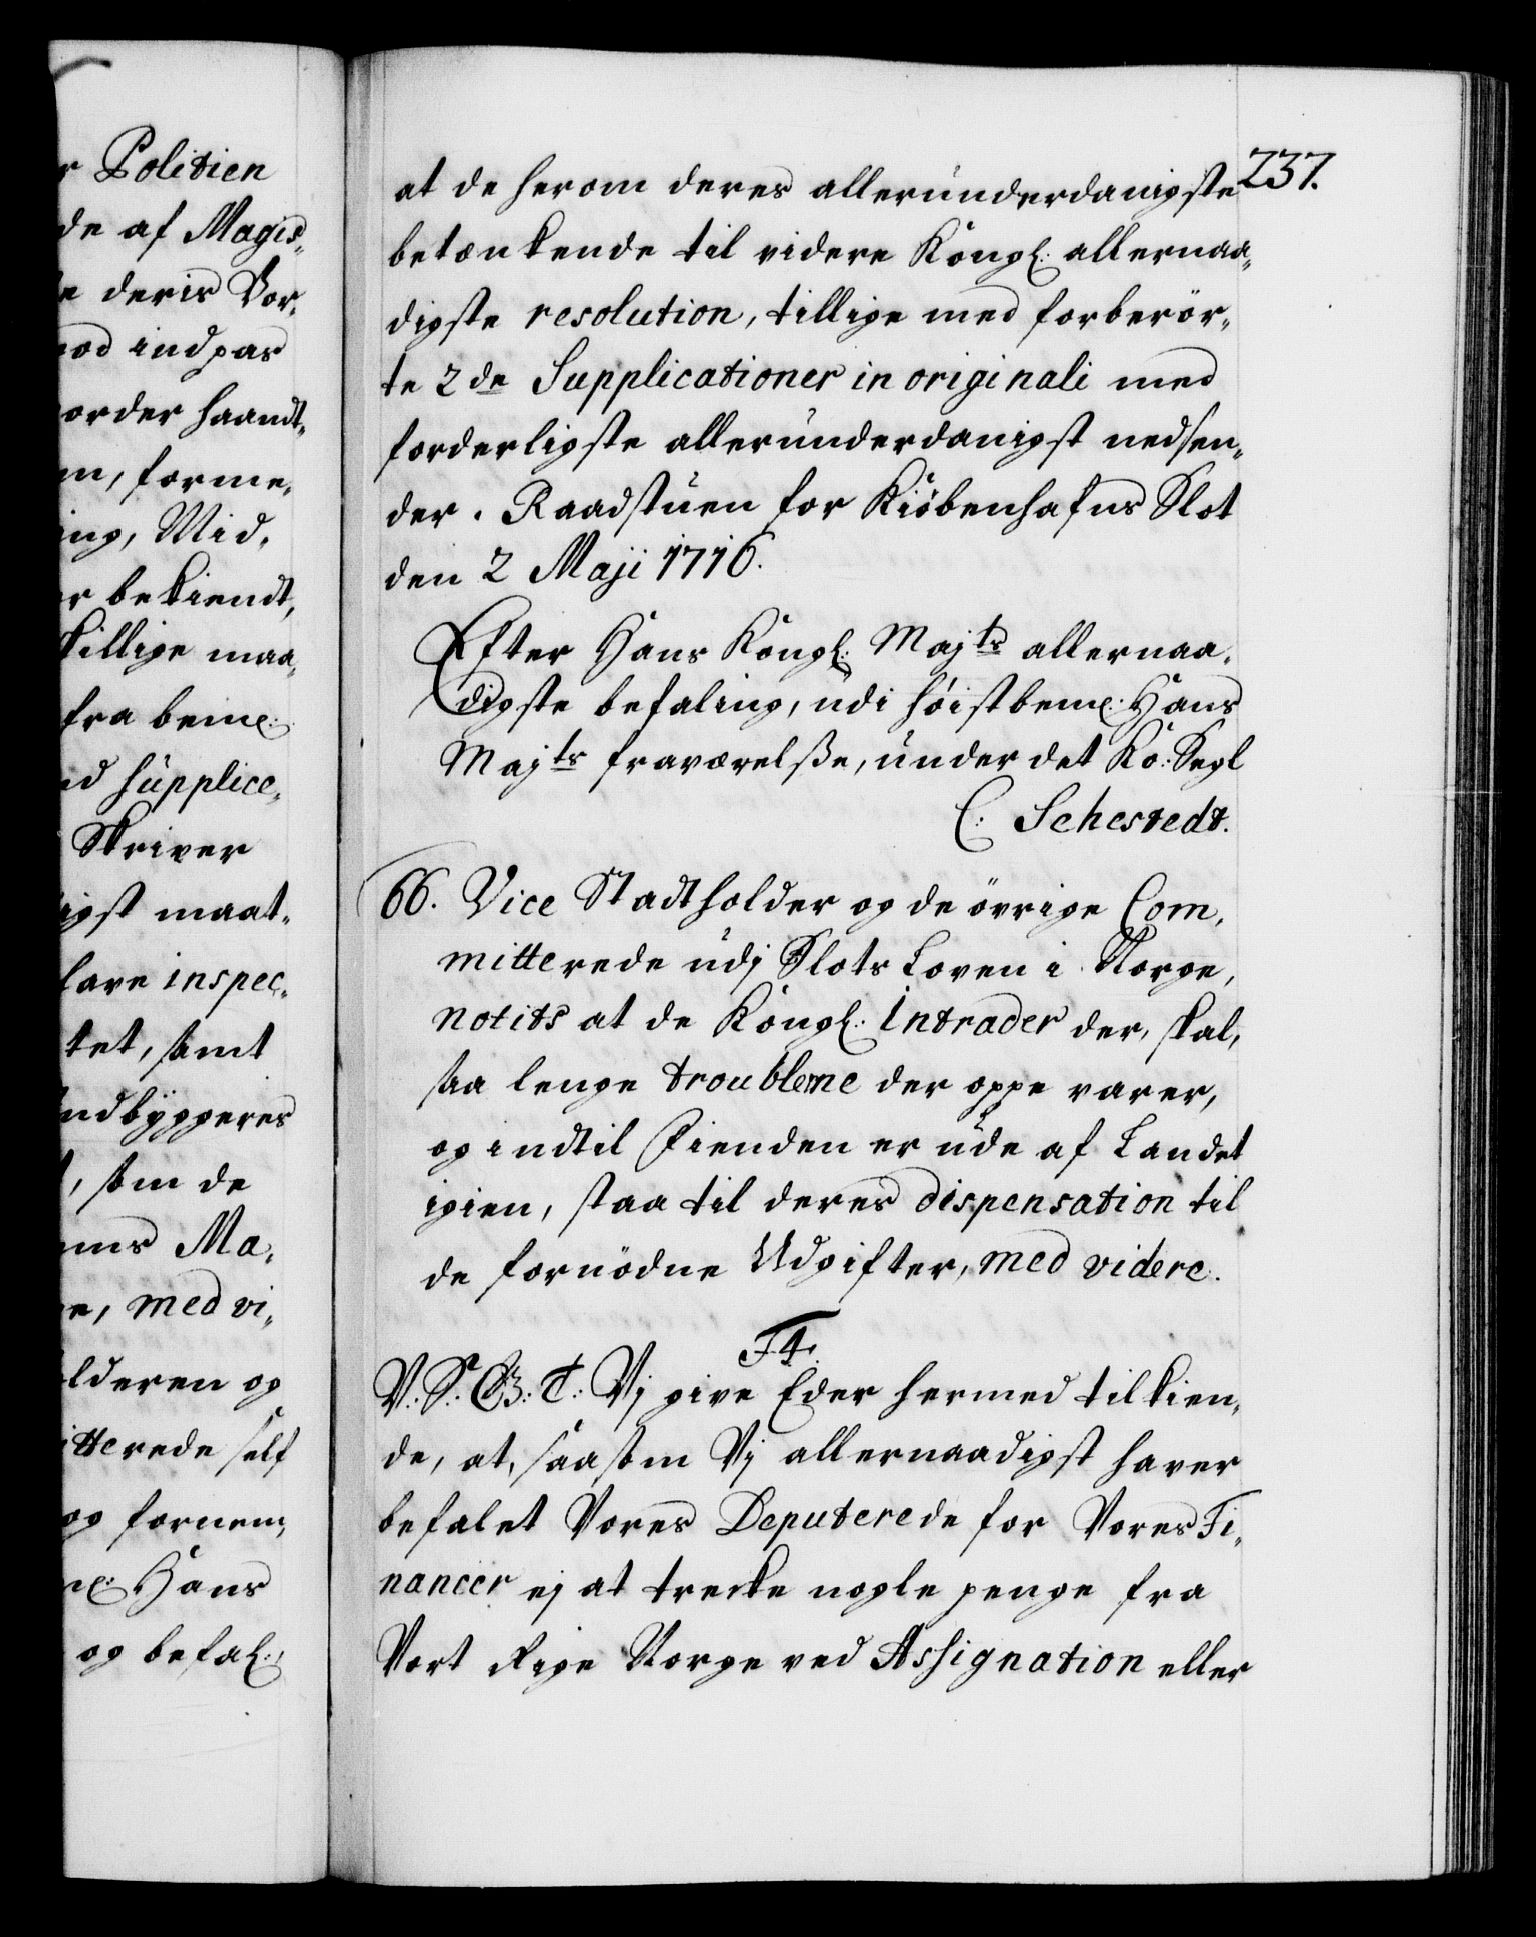 r Politien
de af Magis„
e deris Vor„
nod indgas
order haandt„
en, forme„
ing, Mid„
er bekiendt,
skillige maa„
fra beme:
nd supplice„
Skriver
igst maat„
lare inspec„
tet, samt
ndbyggeres
, som de
ms Ma„
e, med vi„
lderen og
itterede self
og fornem„
me: Hans
og befal:
237.
at de herom deres allerunderdanigste
betænkende til videre Kongl: allernaa„
digste resolution, tillige med forberör„
te 2de Supplicationer in originali med
forderligste allerunderdanigst nedsen„
der. Raadstuen for Kiöbenhafns Slot
den 2 Maji 1716.
Efter Hans Kongl: Majts allernaa„
digste befaling, udi höistbeme: Hans
Majts fraværelsse, under det Ko: Segl
C: Sehestedt.
66. Vice Stadtholder og de övrige Com„
mitterede udj Slots Loven i Norge,
notits at de Kongl: Intrader der, skal,
saa lenge troublerne der oppe varer,
og indtil Fienden er ude af Landet
igien, staa til deres dispensation til
de fornödne Udgifter, med videre.
F4.
V: S: G: B: T: Vj give Eder hermed tilkien„
de, at, saasom Vj allernaadigst haver
befalet Vores Deputerede for Vores Fi„
nancer ej at trecke nogle penge fra
Vort Rige Norge ved Assignation eller